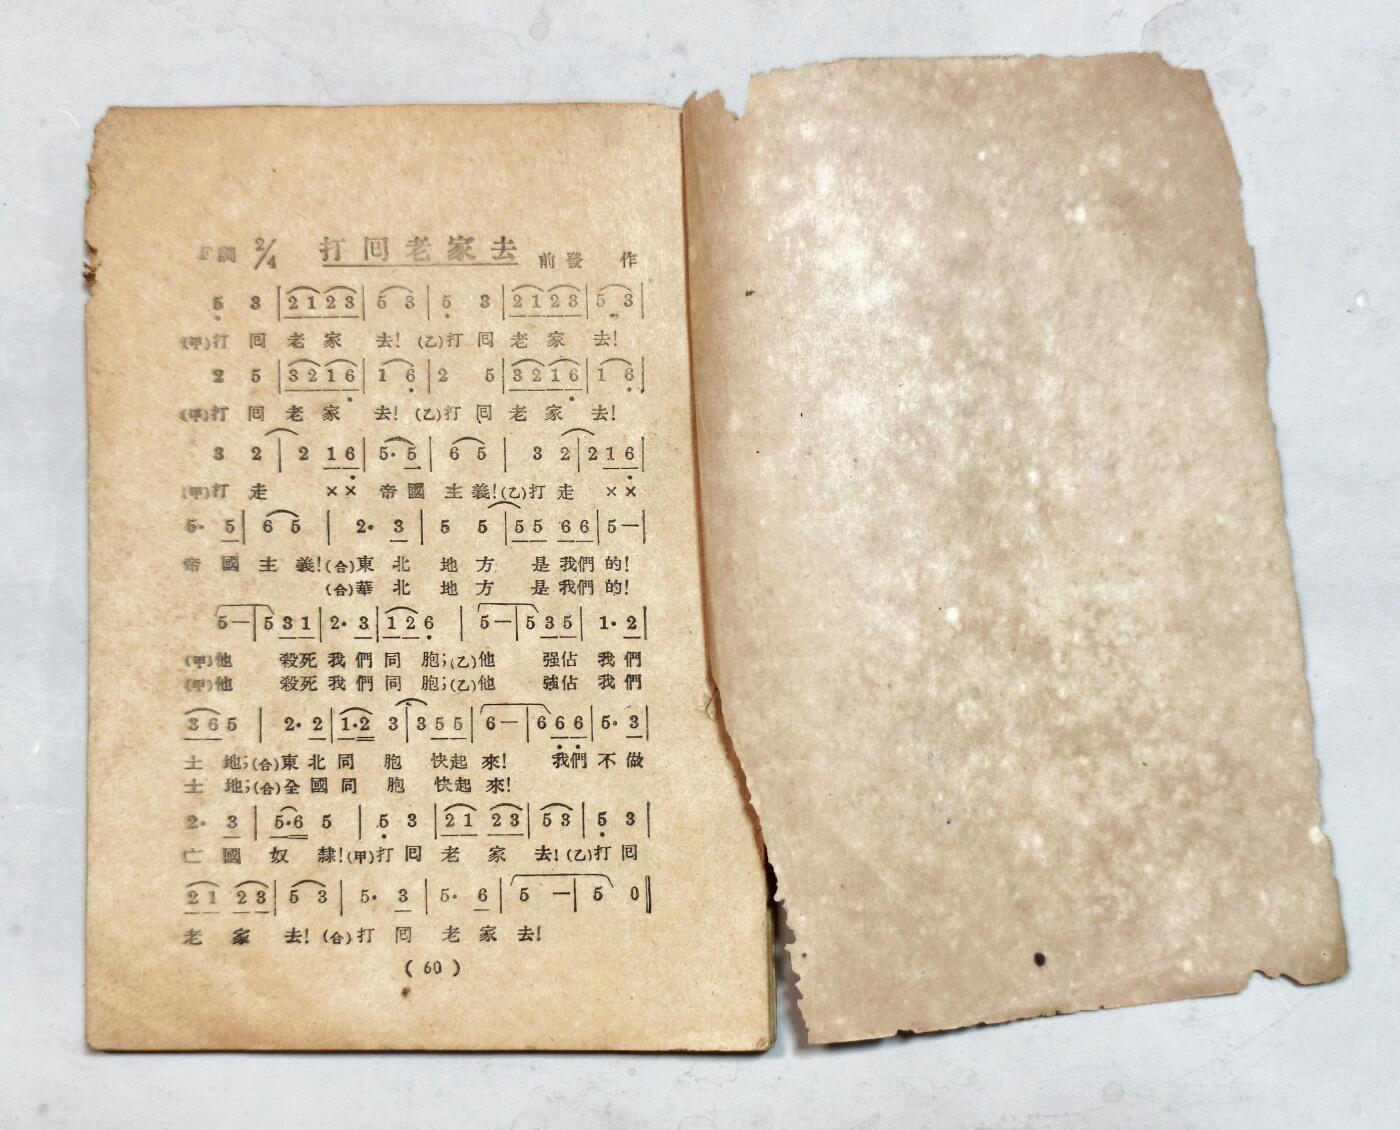 F調 2/4 打囘老家去 前發 作
5 3 | 2 1 2 3 | 5 3 | 5 3 | 2 1 2 3 | 5 3 |
(甲)打 囘 老 家 去! (乙)打 囘 老 家 去!
2 5 | 3 2 1 6 | 1 6 | 2 5 | 3 2 1 6 | 1 6 |
(甲)打 囘 老 家 去! (乙)打 囘 老 家 去!
3 2 | 2 1 6 | 5· 5 | 6 5 | 3 2 | 2 1 6 |
(甲)打 走 ×× 帝 國 主 義!(乙)打 走 ××
5· 5 | 6 5 | 2· 3 | 5 5 | 5 5 6 6 | 5 — |
帝 國 主 義!(合)東 北 地 方 是 我們 的!
(合)華 北 地 方 是 我們 的!
5 — | 5 3 1 | 2· 3 | 1 2 6 | 5 — | 5 3 5 | 1· 2 |
(甲)他 殺死 我 們 同 胞;(乙)他 强佔 我 們
(甲)他 殺死 我 們 同 胞;(乙)他 強佔 我 們
3 6 5 | 2· 2 | 1·2 3 | 3 5 5 | 6 — | 6 6 6 | 5· 3 |
土 地;(合)東 北 同 胞 快起 來! 我們 不 做
土 地;(合)全 國 同 胞 快起 來!
2· 3 | 5·6 5 | 5 3 | 2 1 2 3 | 5 3 | 5 3 |
亡 國 奴 隸!(甲)打 囘 老 家 去! (乙)打 囘
2 1 2 3 | 5 3 | 5· 3 | 5· 6 | 5 — | 5 0 ‖
老 家 去! (合)打 囘 老 家 去!
( 60 )